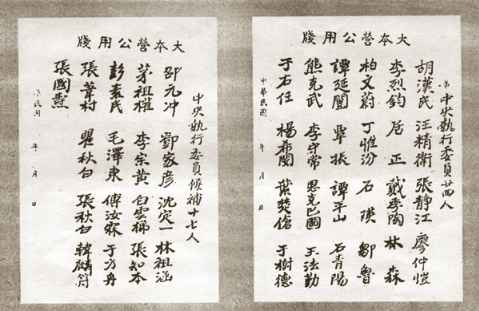 大本營公用牋
中央執行委員廿四人
胡漢民 汪精衛 張靜江 廖仲愷
李烈鈞 居正 戴季陶 林森
柏文蔚 丁惟汾 石瑛 鄒魯
譚延闓 覃振 譚平山 石青陽
熊克武 李守常 恩克巴圖 王法勤
于右任 楊希閔 葉楚傖 于樹德
中華民國 年 月 日
大本營公用牋
中央執行委員候補十七人
邵元冲 鄧家彥 沈定一 林祖涵
茅祖權 李宗黃 白雲梯 張知本
彭素民 毛澤東 傅汝霖 于方舟
張葦村 瞿秋白 張秋白 韓麟符
張國燾
年 月 日